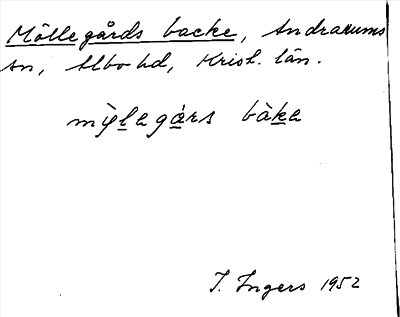 Möllegårds backe, Andrarums
sn, Albo hd, Krist. län.
mỳlagárs bàka
I. Ingers 1952